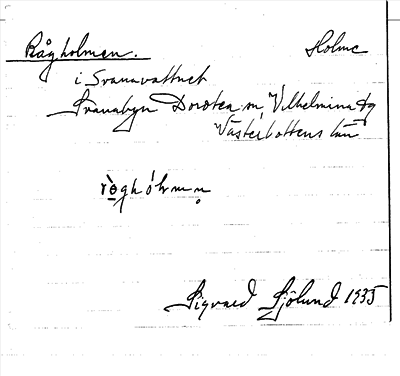 Rågholmen. Holme
i Svanavattnet
Svanabyn Dorotea sn Vilhelmina tg
Västerbottens län
Sigvard Sjölund 1935